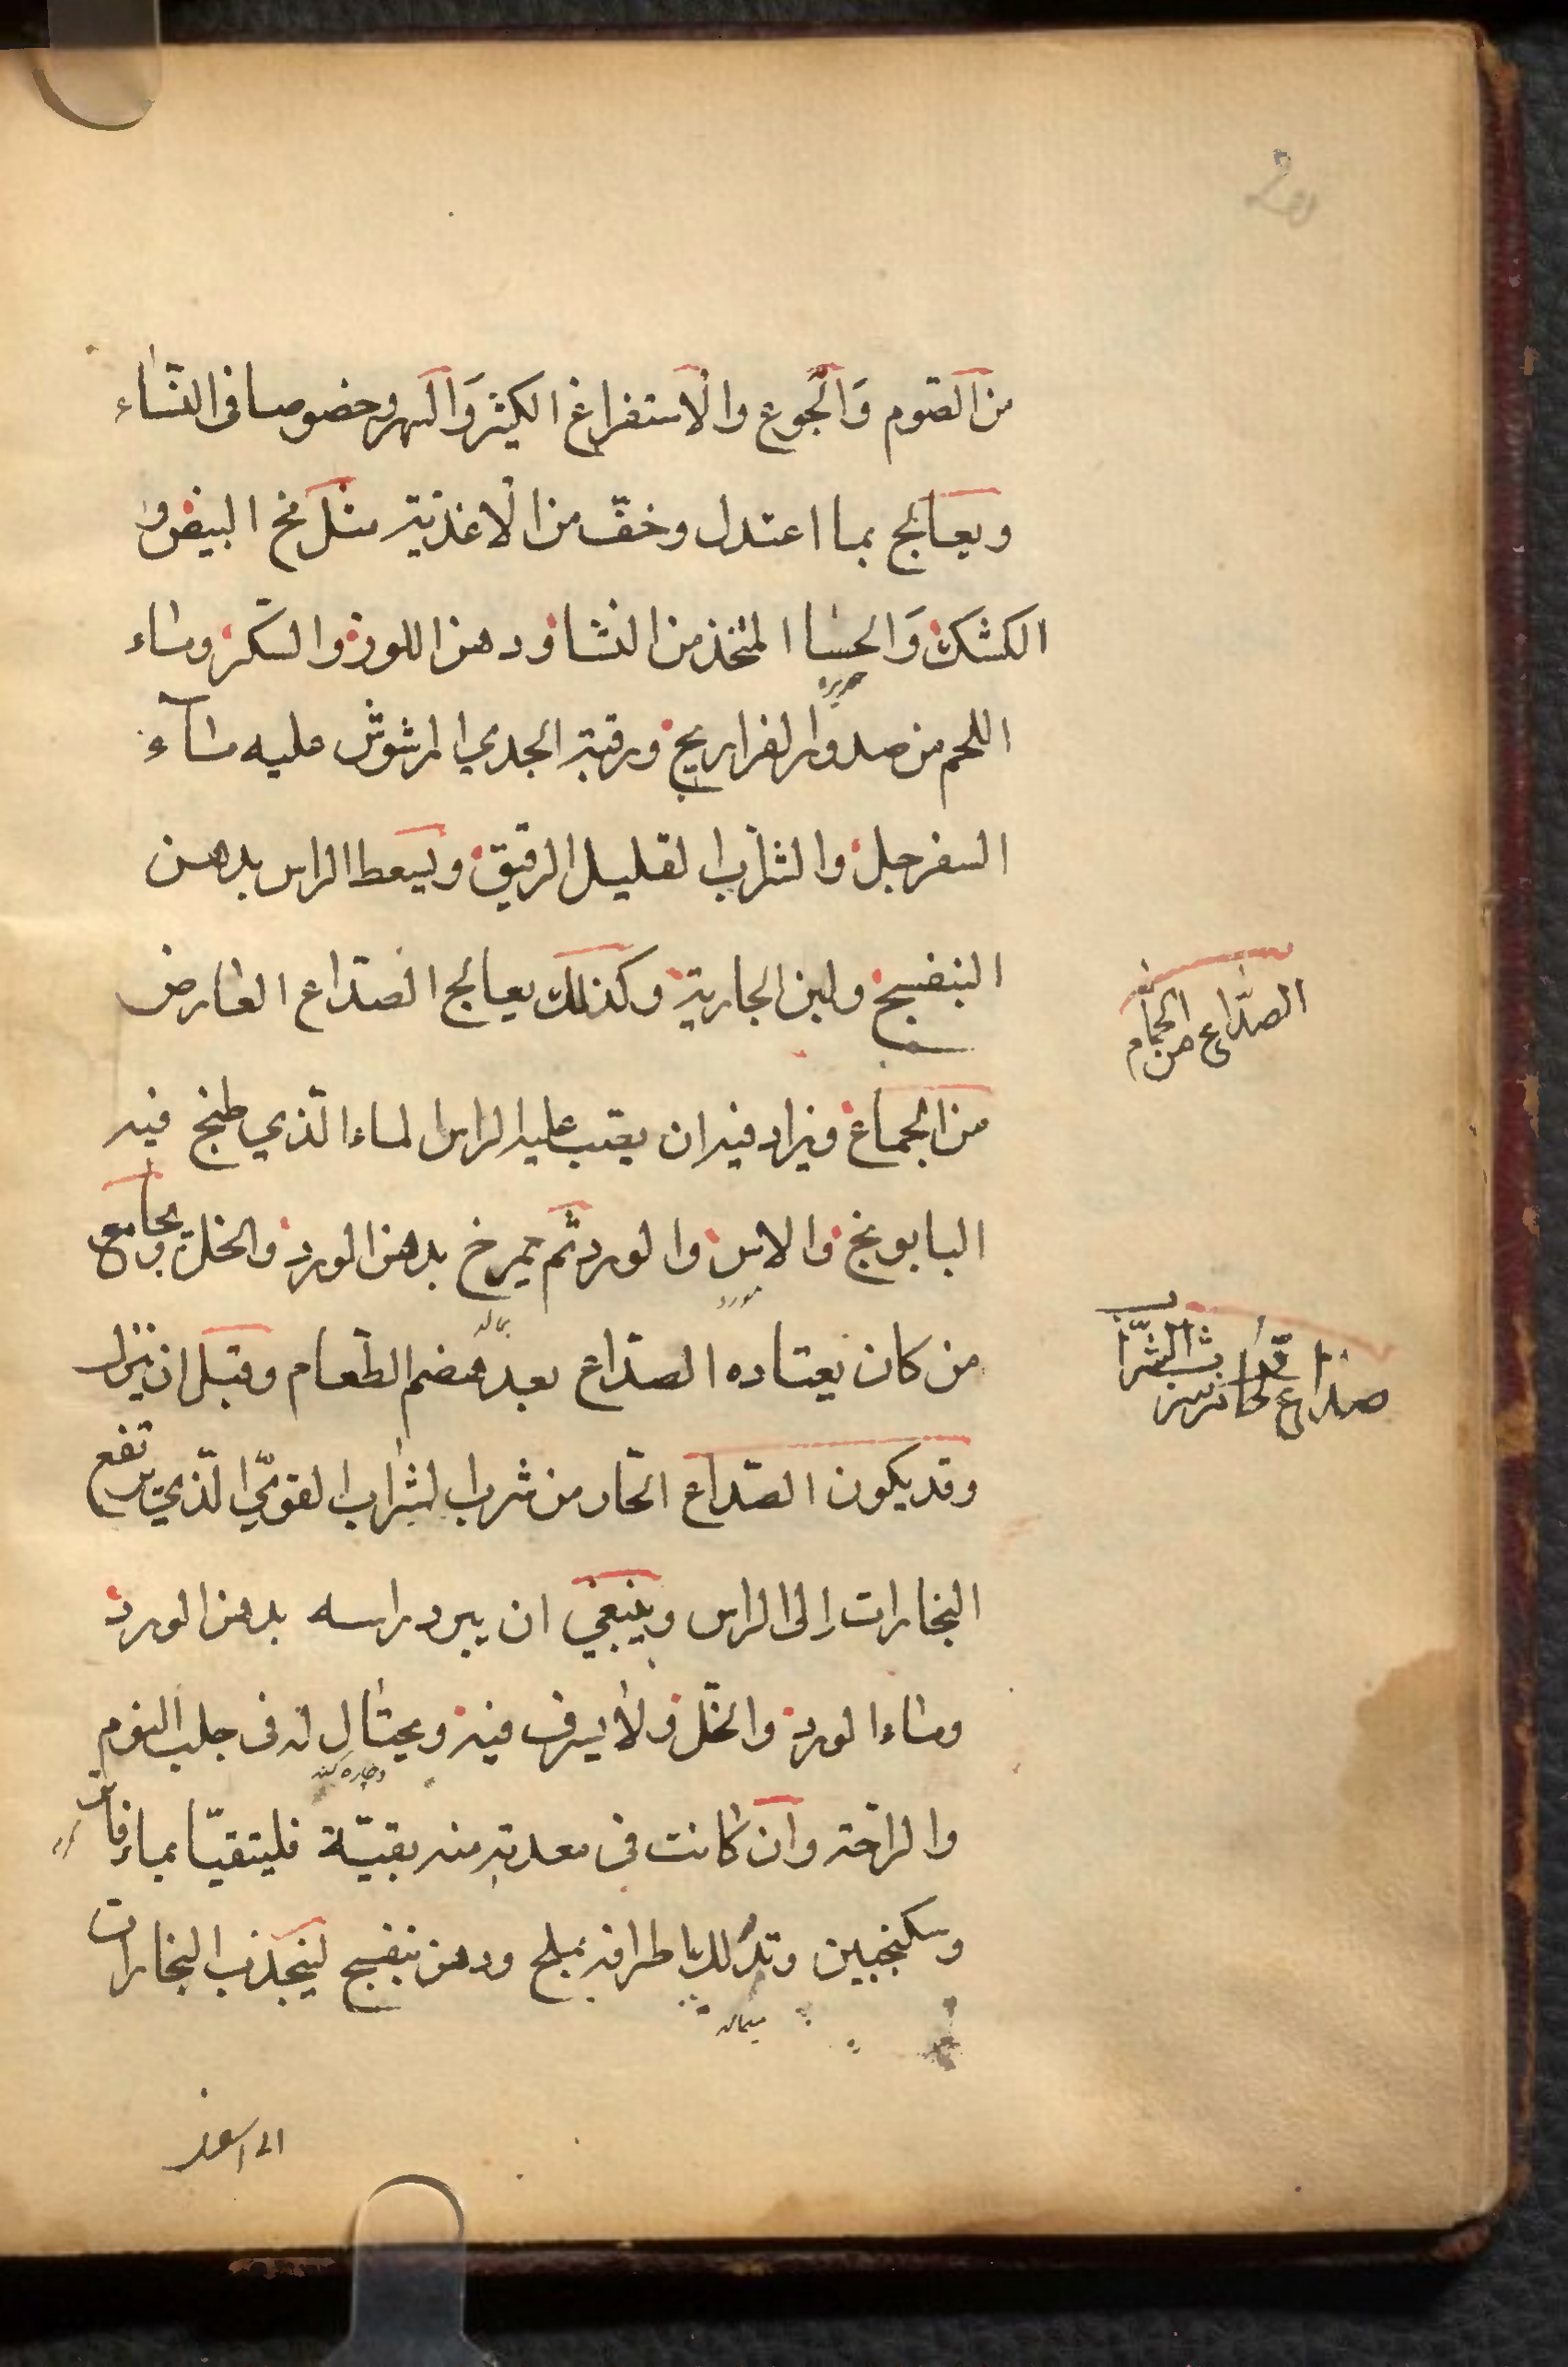 من الصّوم وَالجُوع والاستفراغ الكثير وَالسهر وخصوصا فى النّساء
ويعالج بما اعتدل وخفّ من الاغذية مثل مخ البيض و
الكشك وَالحسا المتخذ من النشا ودهن اللوز والسّكر وماء
حريره
اللحم من صدور الفراريج ورقبة الجدي المرشوش عليه ماء
السفرجل والشراب القليل الرقيق ويسعط الراس بدهن
البنفسج ولبن الجارية وكذلك يعالج الصّداع العارض
من الجماع ويزاد فيه ان يصب عليه الراس الماء الّذي طبخ فيه
البابونج والاس والورد ثم يمرخ بدهن الورد والخل ويجامع
مورد
من كان يعتاده الصّداع بعد هضم الطّعام وقبل ان ينزل
وقد يكون الصّداع الحّار من شرب الشراب القويّ الّذي يرتفع
البخارات إلى الراس وينبغي ان يبرد راسه بدهن الورد
وماء الورد والخّل ولا يسرف فيه ويحتال له فى جلب النوم
والراحة وان كانت فى معدته منه بقيّة فليتقيّا بماء فاتر
وسكنجبين وتدلك اطرافه بملح ودهن بنفسج لينجذب البخارات
ميماله
الى اسفل
الصدّاع من الجماع
صداع الحار من شرب الشّراب
20